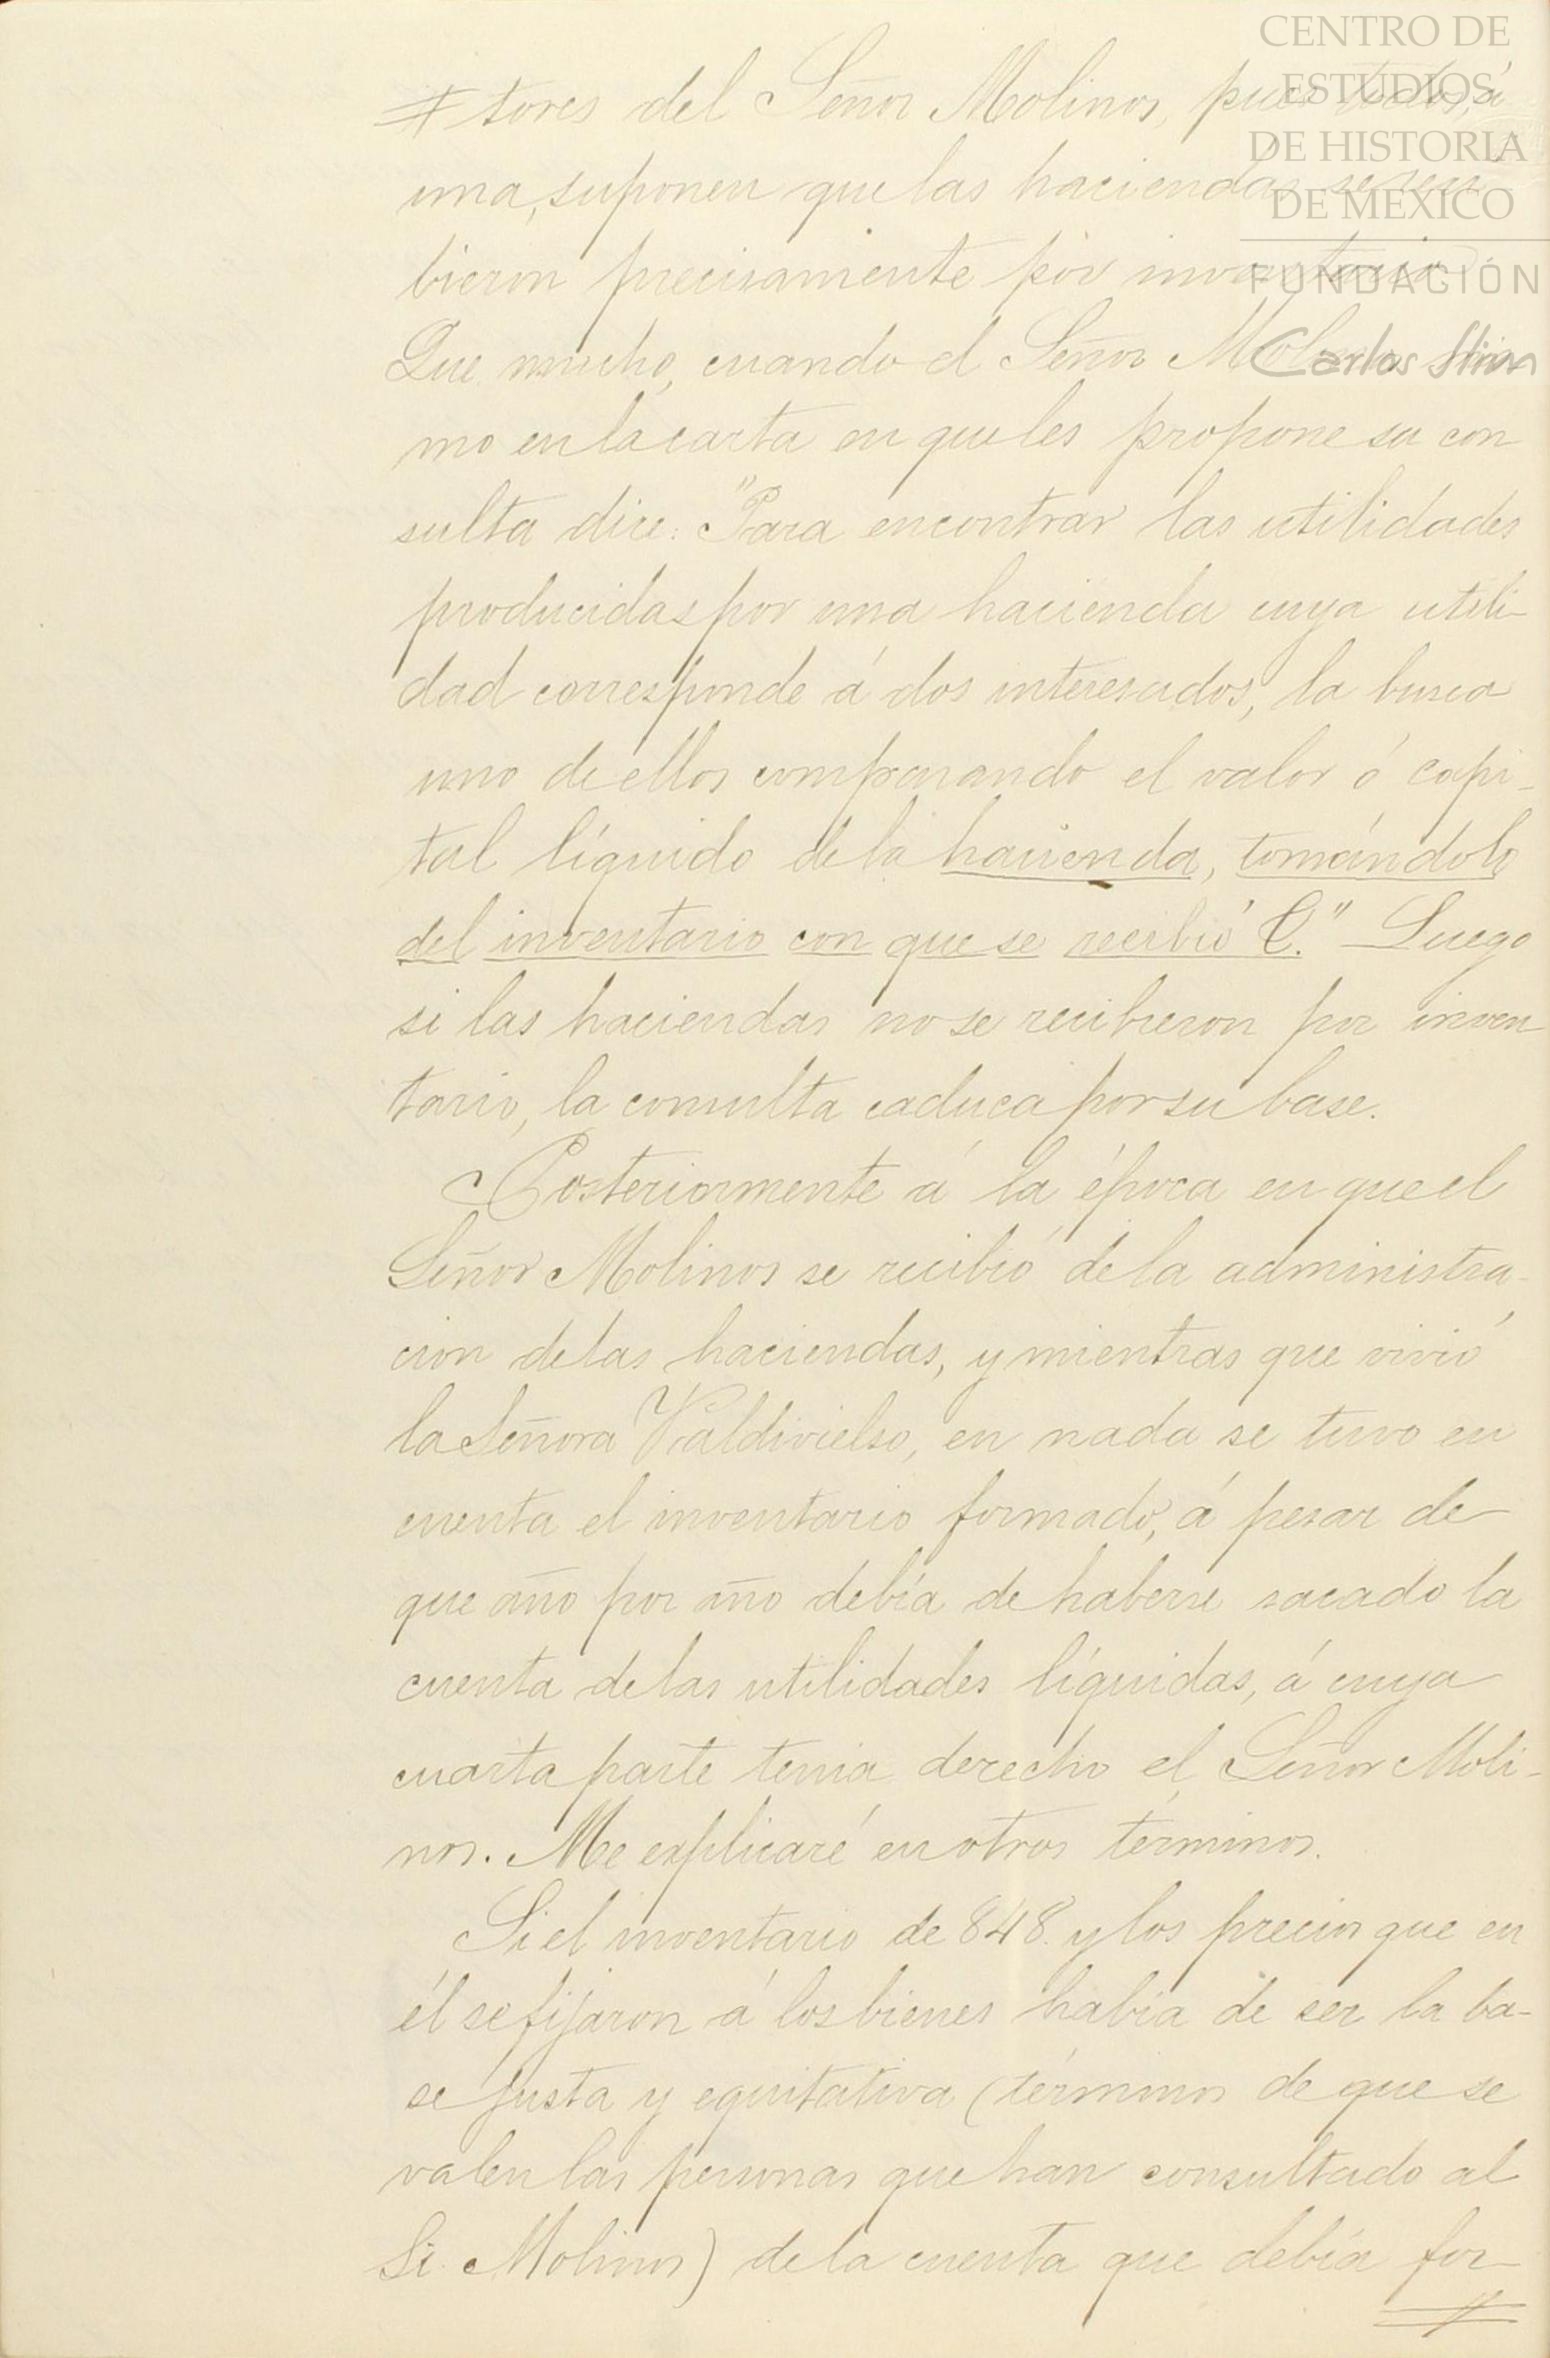 CENTRO DE
ESTUDIOS
DE HISTORIA
DE MEXICO
FUNDACIÓN
Carlos Slim
tores del Señor Molinos, pues todos, á
una, suponen que las haciendas se reci
bieron precisamente por inventario.
Que mucho, cuando el Señor Molinos mis
mo en la carta en que les propone su con
sulta dice: "Para encontrar las utilidades
producidas por una hacienda cuya utili-
dad corresponde á dos interesados, la busca
uno de ellos comparando el valor ó capi-
tal líquido de la hacienda, tomándolo
del inventario con que se recibió &." Luego
si las haciendas no se recibieron por inven
tario, la consulta caduca por su base.
Posteriormente á la época en que el
Señor Molinos se recibió de la administra-
cion de las haciendas, y mientras que vivió
la Señora Valdivielso, en nada se tuvo en
cuenta el inventario formado, á pesar de
que año por año debía de haberse sacado la
cuenta de las utilidades líquidas, á cuya
cuarta parte tenia derecho el Señor Moli-
nos. Me explicaré en otros términos.
Si el inventario de 848. y los precios que en
él se fijaron á los bienes había de ser la ba-
se justa y equitativa (términos de que se
valen las personas que han consultado al
Sr. Molinos) de la cuenta que debía for-